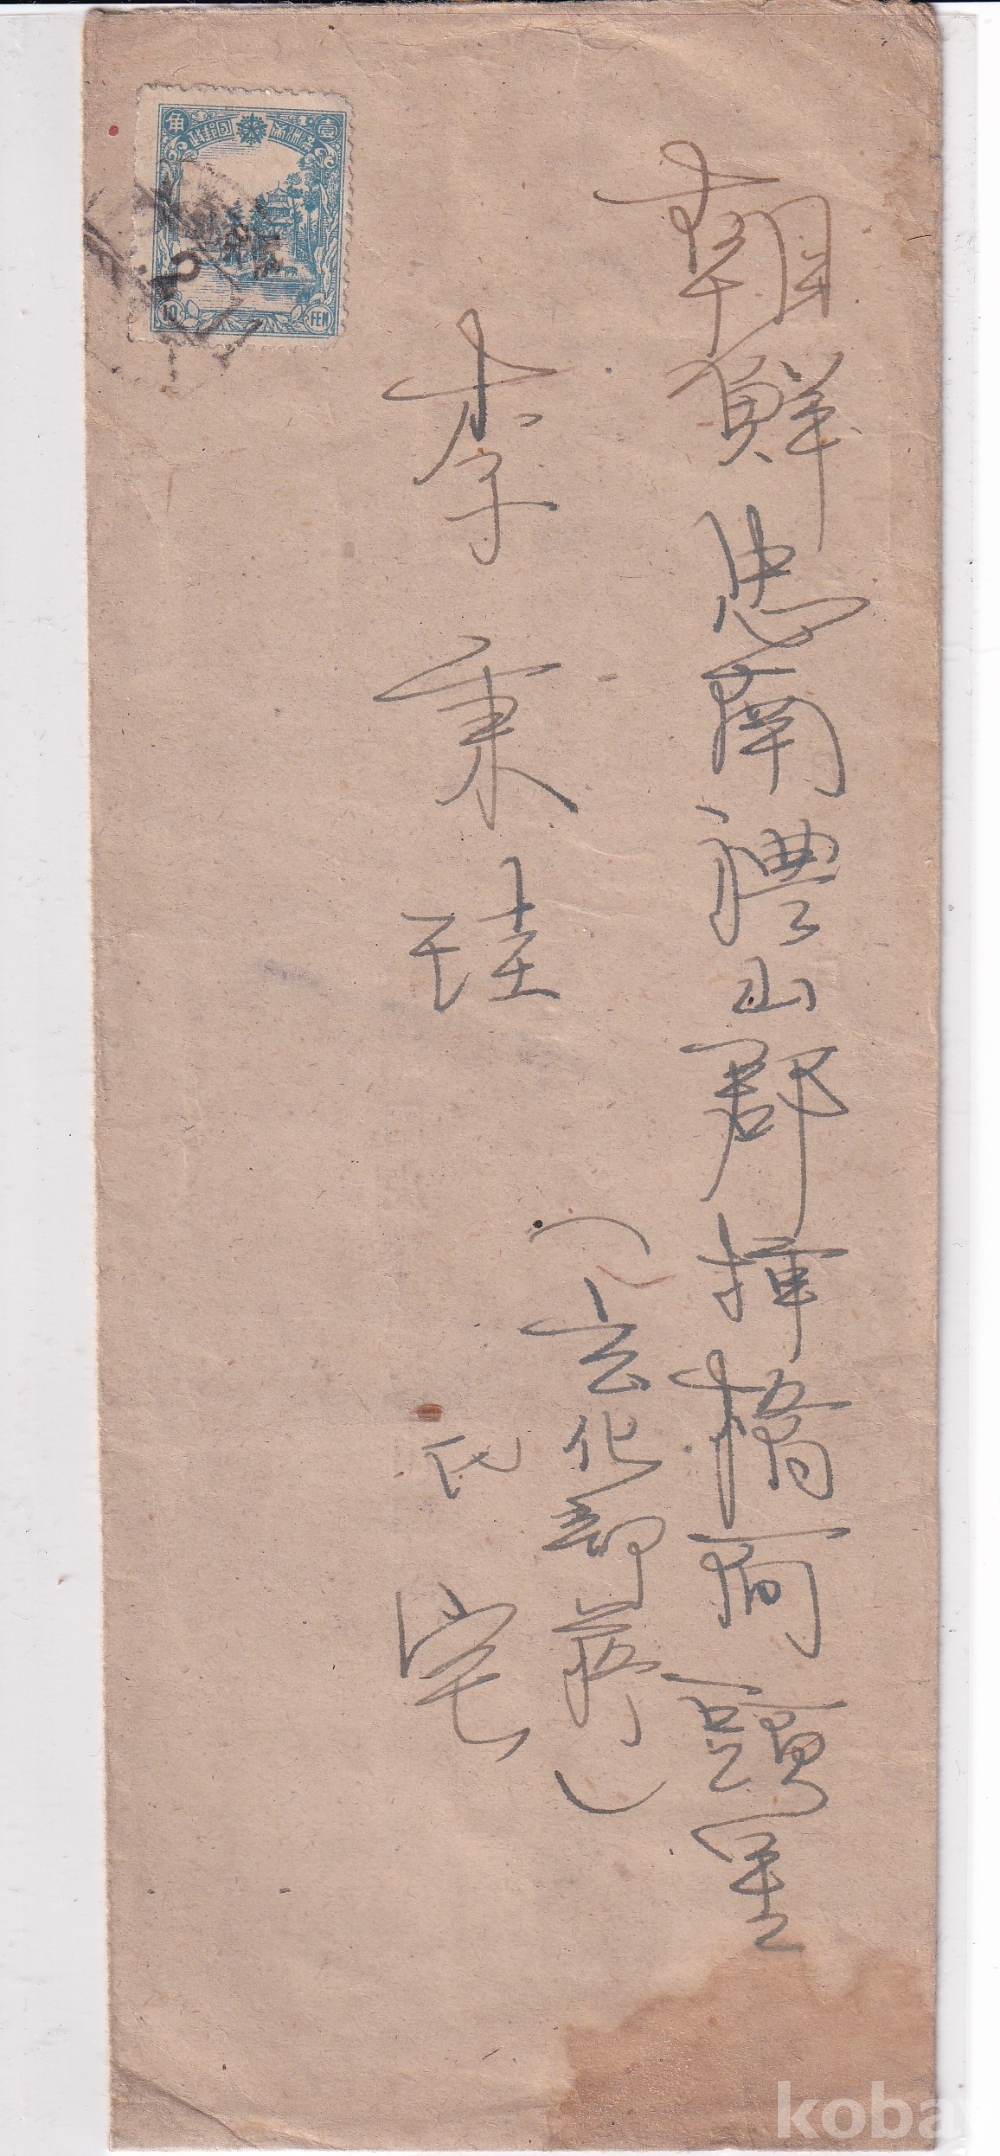 朝鮮忠南禮山郡挿橋面頭里
(玄化部蒋)
李秉珪
氏宅
壹角
滿洲帝國郵政
10 FEN
koba